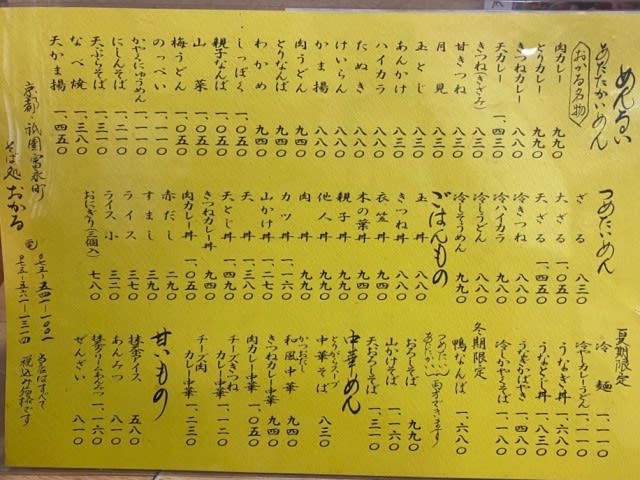 めんるい
あたたかいめん
おかる名物
肉カレー 九九〇
とりカレー 九九〇
きつねカレー 八八〇
天カレー 一、四三〇
きつね(きざみ) 八八〇
甘きつね 八八〇
月見 八八〇
玉とじ 八八〇
あんかけ 八八〇
ハイカラ 八八〇
たぬき 八八〇
けいらん 八八〇
かま揚 八八〇
肉うどん 九四〇
とりなんば 九四〇
わかめ 九四〇
しっぽく 一、〇五〇
親子なんば 一、〇五〇
山菜 一、〇五〇
梅うどん 一、〇五〇
のっぺい 一、一一〇
かやくにゅうめん 一、一一〇
にしんそば 一、二一〇
天ぷらそば 一、三八〇
なべ焼 一、三八〇
天かま揚 一、四五〇
つめたいめん
ざる 八三〇
大ざる 一、〇五〇
天ざる 一、四五〇
冷きつね 八八〇
冷ハイカラ 八八〇
冷しうどん 八八〇
冷しそうめん 九九〇
ごはんもの
玉丼 八八〇
きつね丼 八八〇
衣笠丼 九四〇
木の葉丼 九四〇
親子丼 九九〇
他人丼 九九〇
肉丼 九九〇
カツ丼 一、一六〇
山かけ丼 一、二七〇
天丼 一、三八〇
天とじ丼 一、四九〇
きつねカレー丼 九四〇
肉カレー丼 一、〇五〇
赤だし 二九〇
すまし 三九〇
ライス 三七〇
ライス小 三二〇
おにぎり(三個入) 七八〇
夏期限定
冷麺 一、一一〇
冷やカレーうどん 一、一一〇
うなぎ丼 一、六八〇
うなとじ丼 一、八三〇
うなぎかばやき 一、五〇〇
冷しかやくそば 一、一〇〇
冬期限定
鴨なんば 一、六八〇
つめたい
あたたかい 両方できます
おろしそば 九九〇
山かけそば 一、一六〇
天おろしそば 一、三一〇
中華めん
とりがらスープ
中華そば 八三〇
かつおだし
和風中華 九四〇
きつねカレー中華 九四〇
肉カレー中華 一、〇五〇
チーズきつね
カレー中華 一、一二〇
チーズ肉
カレー中華 一、二三〇
甘いもの
抹茶アイス 五八〇
あんみつ 八一〇
抹茶クリームあんみつ 一、一六〇
ぜんざい 八一〇
京都・祇園富永町
そば処 おかる
〇七五-五四一-一〇〇一
〇七五-五六一-一三一四
当店はすべて
税込み価格です